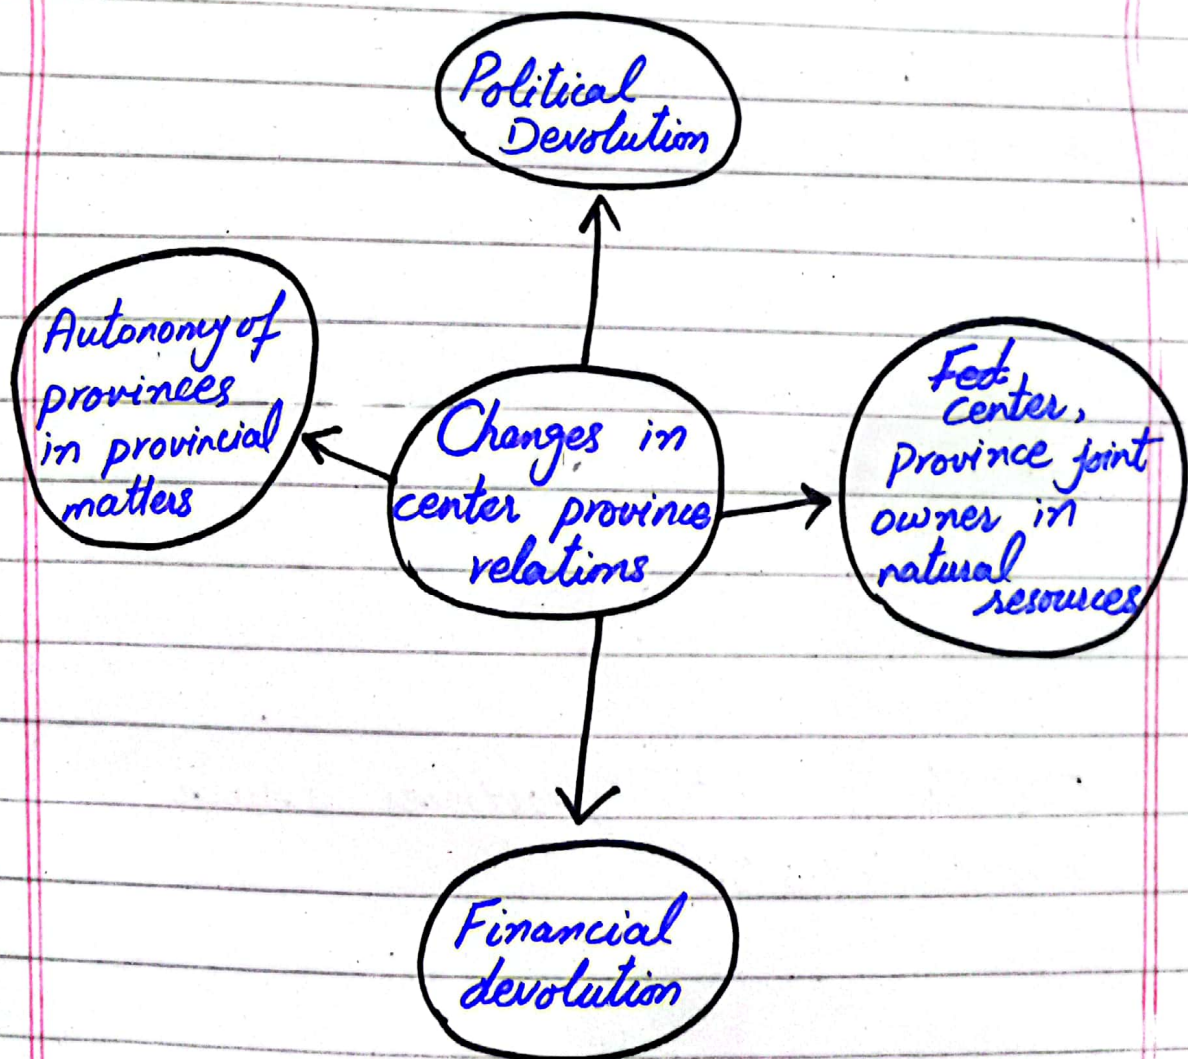 Political
Devolution
Autonomy of
provinces
in provincial
matters
Changes in
center province
relations
Fed.
center,
province joint
owner in
natural
resources
Financial
devolution